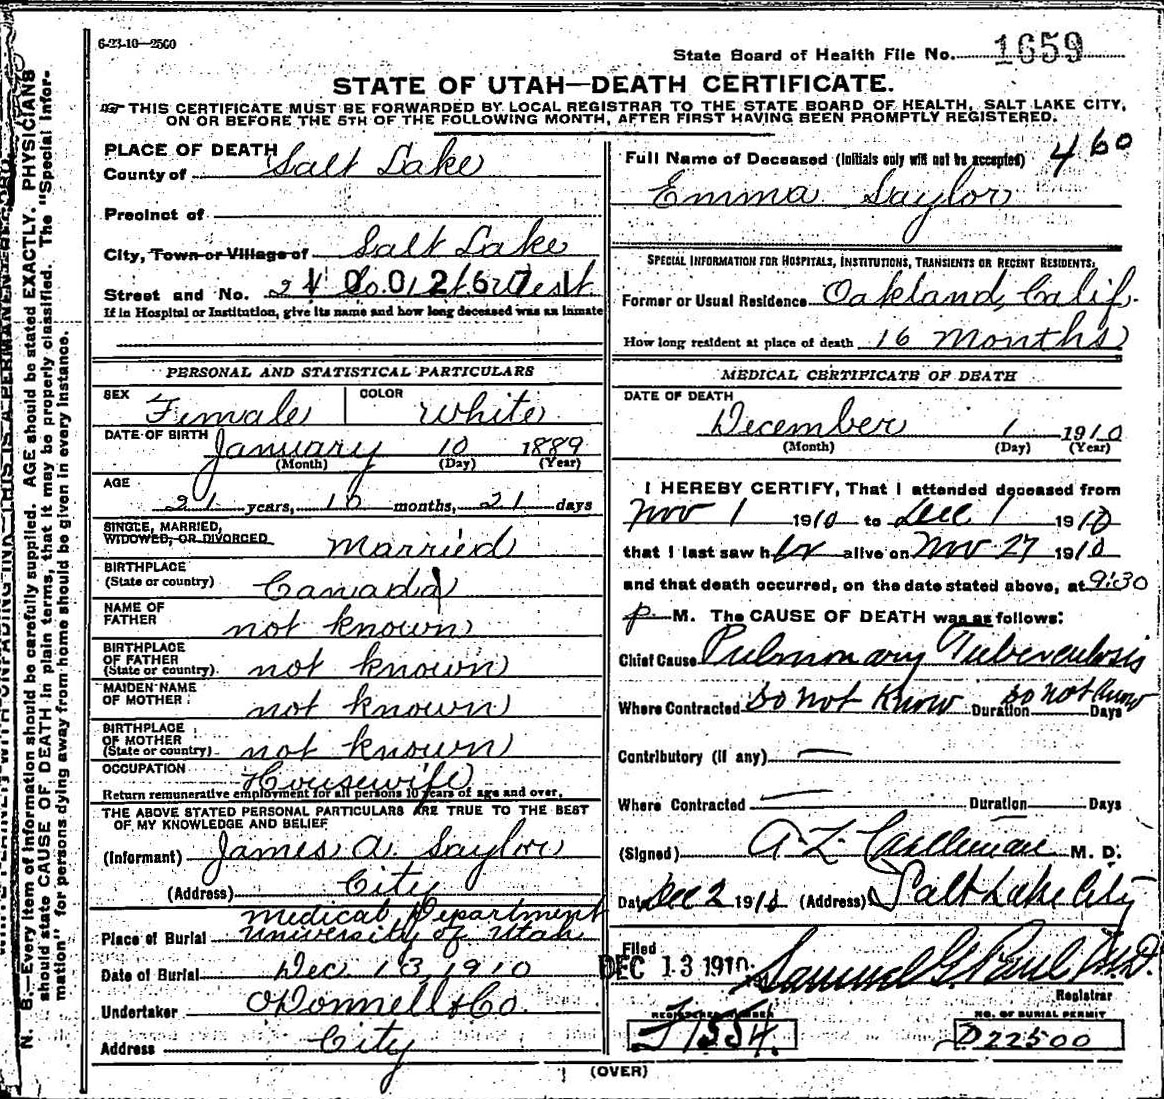 6-23-10—2500
State Board of Health File No. 1659
STATE OF UTAH—DEATH CERTIFICATE.
THIS CERTIFICATE MUST BE FORWARDED BY LOCAL REGISTRAR TO THE STATE BOARD OF HEALTH, SALT LAKE CITY,
ON OR BEFORE THE 5TH OF THE FOLLOWING MONTH, AFTER FIRST HAVING BEEN PROMPTLY REGISTERED.
PLACE OF DEATH
County of Salt Lake
Precinct of
City, Town or Village of Salt Lake
Street and No.
If in Hospital or Institution, give its name and how long deceased was an inmate
PERSONAL AND STATISTICAL PARTICULARS
SEX Female COLOR White
DATE OF BIRTH January 10 1889
(Month) (Day) (Year)
AGE
21 years, 10 months, 21 days
SINGLE, MARRIED,
WIDOWED, OR DIVORCED Married
BIRTHPLACE
(State or country) Canada
NAME OF
FATHER not known
BIRTHPLACE
OF FATHER
(State or country) not known
MAIDEN NAME
OF MOTHER not known
BIRTHPLACE
OF MOTHER
(State or country) not known
OCCUPATION Housewife
Return remunerative employment for all persons 10 years of age and over.
THE ABOVE STATED PERSONAL PARTICULARS ARE TRUE TO THE BEST
OF MY KNOWLEDGE AND BELIEF
(Informant) James A. Saylor
(Address) City
Medical Department
Place of Burial University of Utah
Date of Burial Dec. 13, 1910
Undertaker O'Donnell & Co.
Address City
Full Name of Deceased (Initials only will not be accepted) 460
Emma Saylor
SPECIAL INFORMATION FOR HOSPITALS, INSTITUTIONS, TRANSIENTS OR RECENT RESIDENTS.
Former or Usual Residence Oakland, Calif.
How long resident at place of death 16 Months
MEDICAL CERTIFICATE OF DEATH
DATE OF DEATH
December 1 1910
(Month) (Day) (Year)
I HEREBY CERTIFY, That I attended deceased from
Nov 1 1910 to Dec 1 1910
that I last saw her alive on Nov 27 1910
and that death occurred, on the date stated above, at 9:30
p M. The CAUSE OF DEATH was as follows:
Chief Cause Pulmonary Tuberculosis
Where Contracted Do not Know Duration Do not Know Days
Contributory (if any) —
Where Contracted — Duration Days
(Signed) A. Z. M. D.
Date Dec 2 1910 (Address) Salt Lake City
Filed
DEC 13 1910 Samuel G. Paul M.D.
Registrar
REGISTERED NUMBER
NO. OF BURIAL PERMIT
D22500
(OVER)
N. B.—Every item of information should be carefully supplied. AGE should be stated EXACTLY. PHYSICIANS
should state CAUSE OF DEATH in plain terms, that it may be properly classified. The "Special Infor-
mation" for persons dying away from home should be given in every instance.